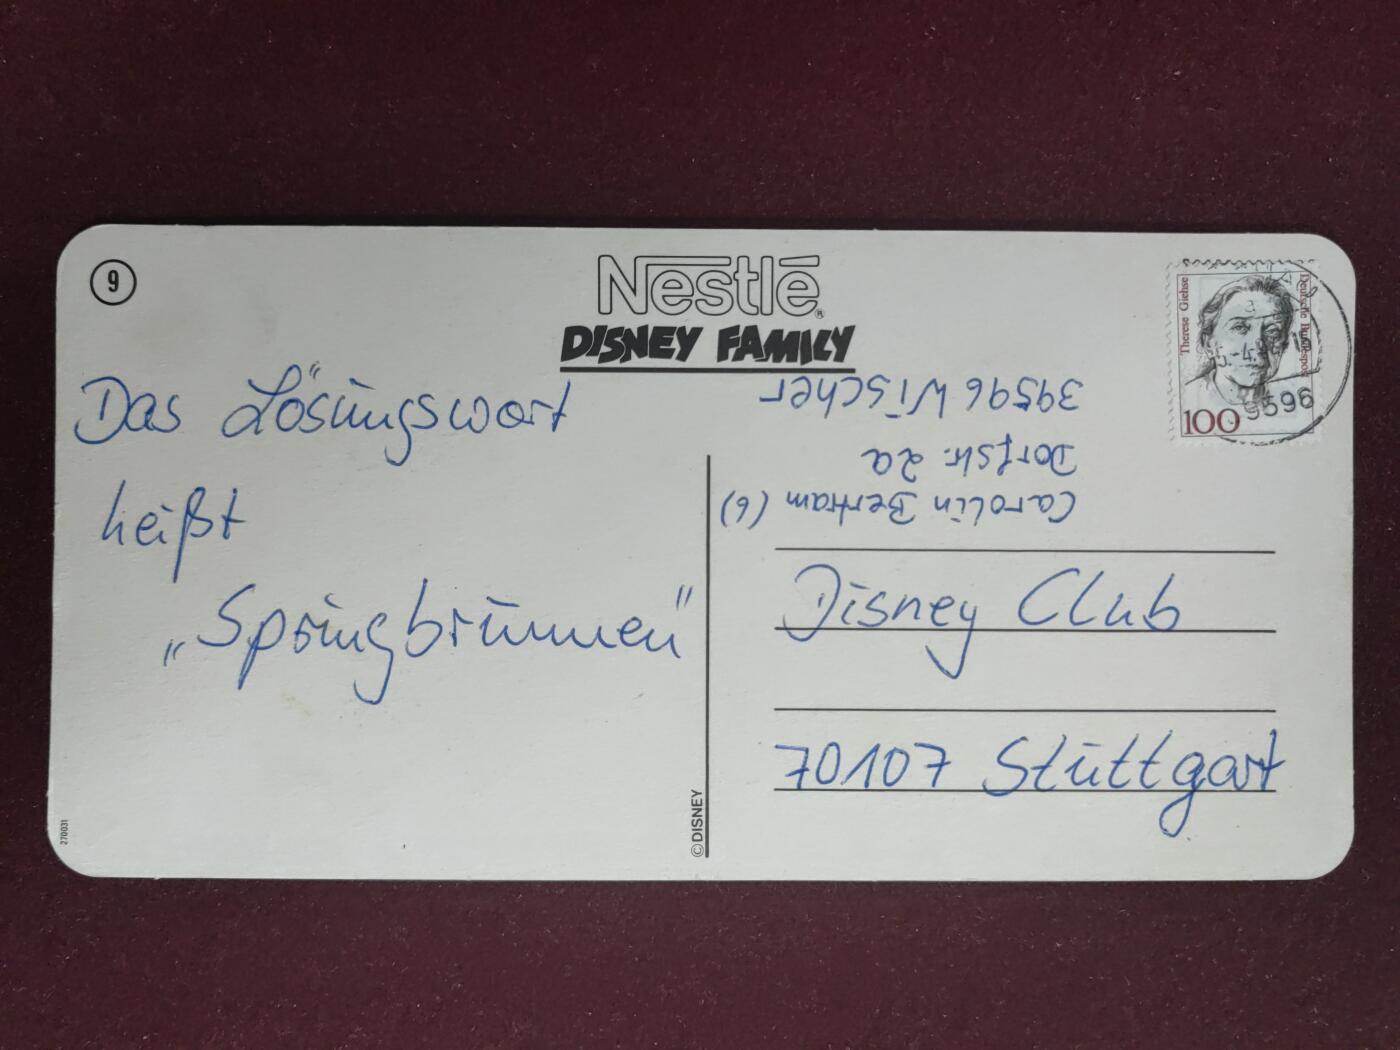 9
Nestlé®
DISNEY FAMILY
Das Lösungswort
heißt
„Springbrunnen"
Carolin Bertram (6)
Dorfstr. 2a
39596 Wischer
Disney Club
70107 Stuttgart
Therese Giehse
Deutsche Bundespost
100
9596
©DISNEY
270031